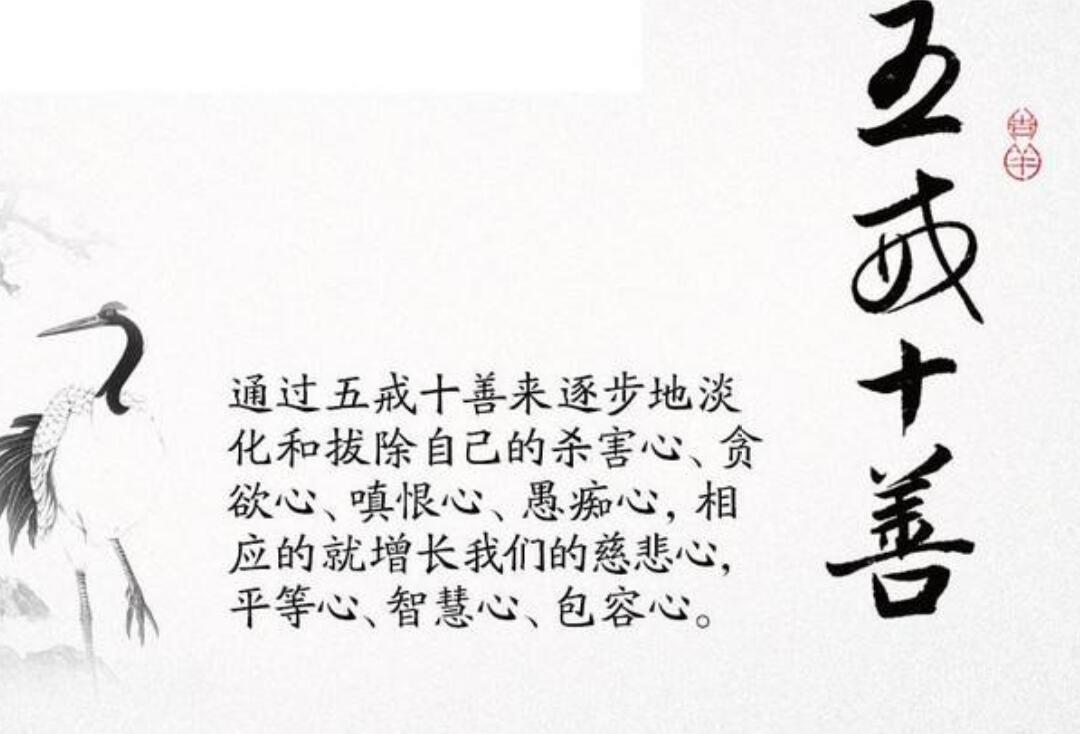 五戒十善
吉羊
通过五戒十善来逐步地淡
化和拔除自己的杀害心、贪
欲心、嗔恨心、愚痴心，相
应的就增长我们的慈悲心，
平等心、智慧心、包容心。